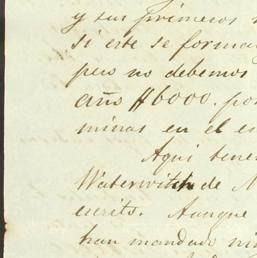 y sus primeros
si este se forma
pero no debemos
año $6000. por
minas en el es
Aqui tene
Waterwitch de N
escrito. Aunque
han mandado ni